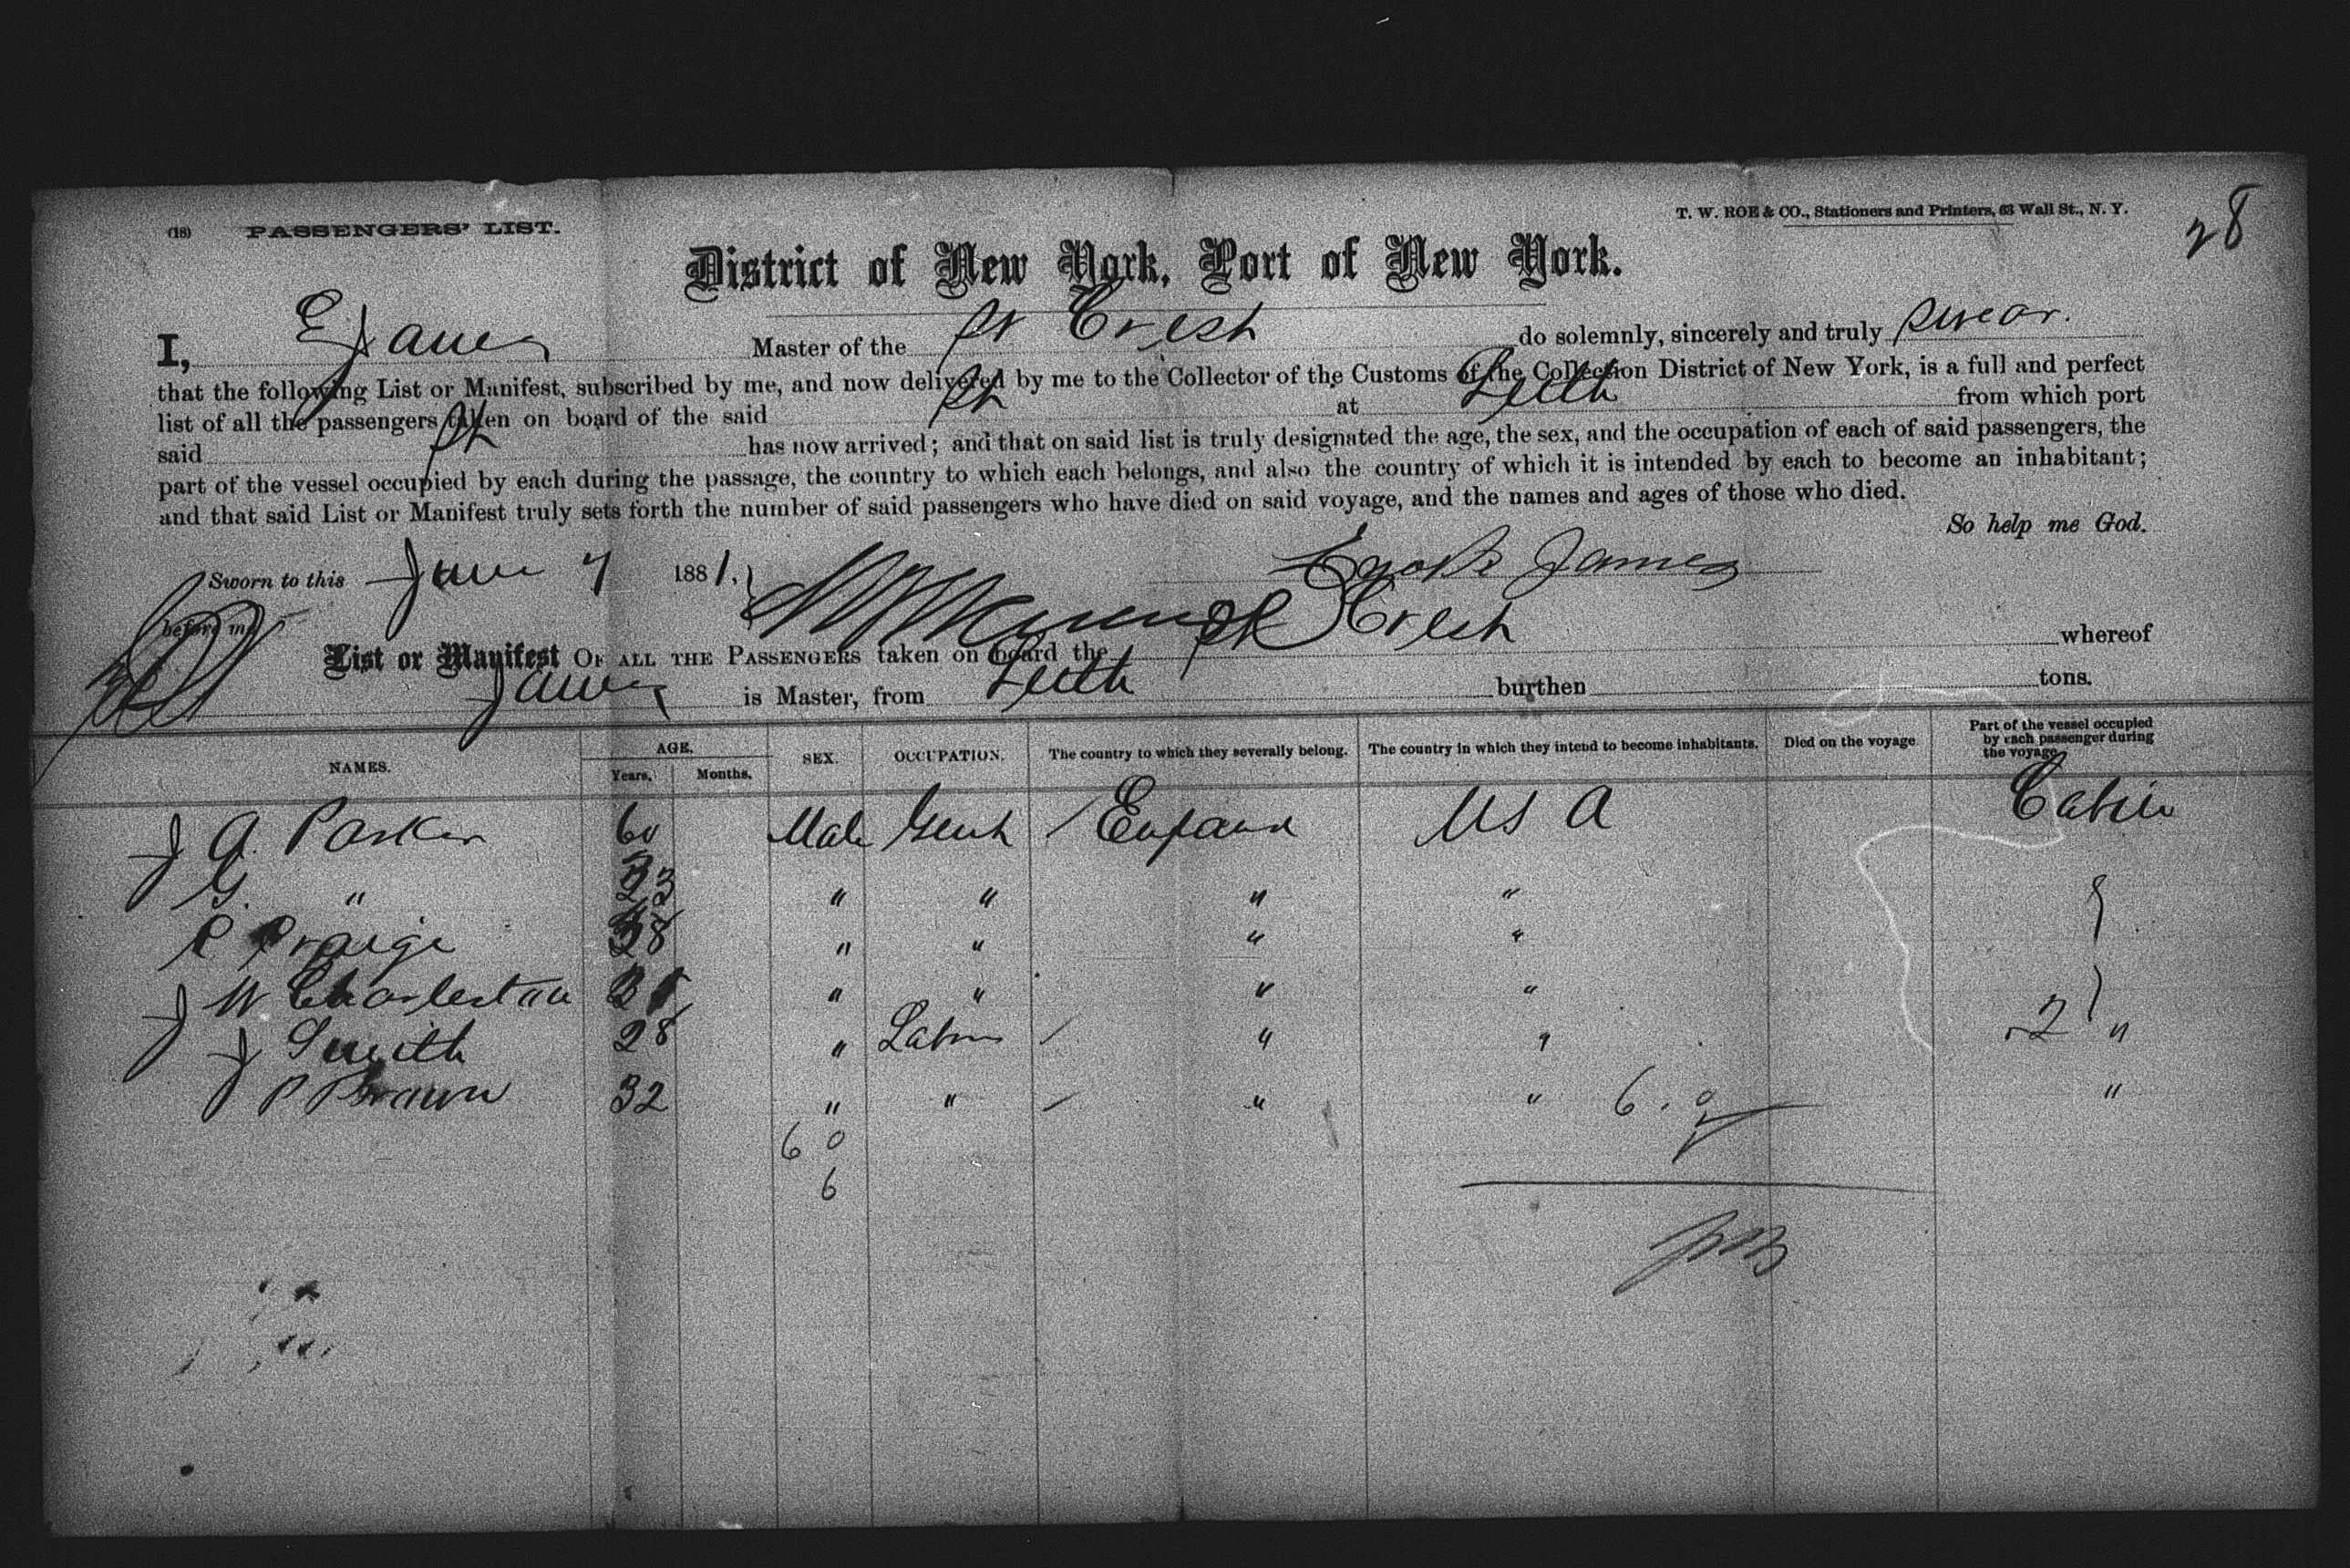 28
(18) PASSENGERS' LIST. T. W. ROE & CO., Stationers and Printers, 63 Wall St., N. Y.
District of New York, Port of New York.
I, E James Master of the Str Crest do solemnly, sincerely and truly swear.
that the following List or Manifest, subscribed by me, and now delivered by me to the Collector of the Customs of the Collection District of New York, is a full and perfect
list of all the passengers taken on board of the said Str at Leith from which port
said Str has now arrived; and that on said list is truly designated the age, the sex, and the occupation of each of said passengers, the
part of the vessel occupied by each during the passage, the country to which each belongs, and also the country of which it is intended by each to become an inhabitant;
and that said List or Manifest truly sets forth the number of said passengers who have died on said voyage, and the names and ages of those who died.
So help me God.
Sworn to this June 7 1881. James
before me
List or Manifest OF ALL THE PASSENGERS taken on board the Crest whereof
James is Master, from Leith burthen tons.
NAMES. AGE. Years. Months. SEX. OCCUPATION. The country to which they severally belong. The country in which they intend to become inhabitants. Died on the voyage Part of the vessel occupied by each passenger during the voyage
J A. Parker 60 Male Gent England US A Cabin
G. " 23 " " " "
38 " " " "
J W Charleston " " " "
J Smith 28 " Labr " " 2 "
P Brown 32 " " " " 6. "
6 0
6